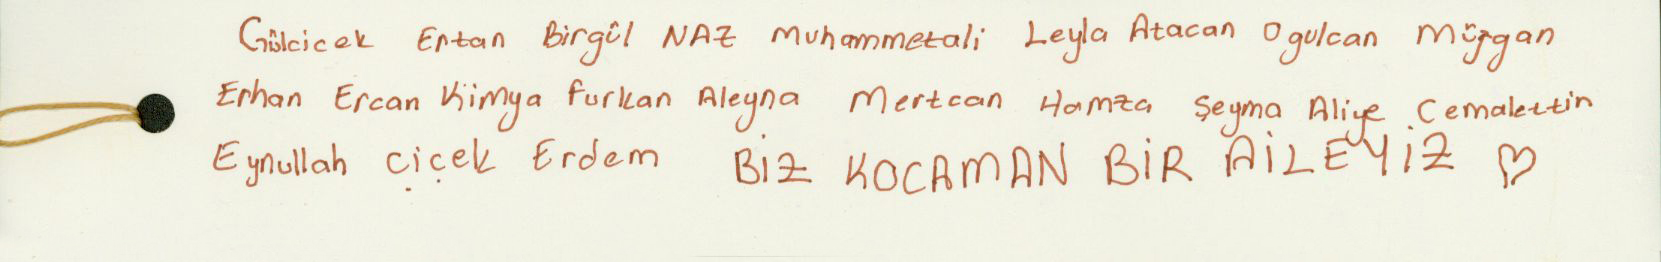 Gülcicek Ertan Birgül NAZ Muhammetali Leyla Atacan Ogulcan Müjgan
Erhan Ercan Kimya furkan Aleyna Mertcan Hamza Şeyma Aliye Cemalettin
Eynullah Çiçek Erdem BİZ KOCAMAN BİR AİLEYİZ ♡